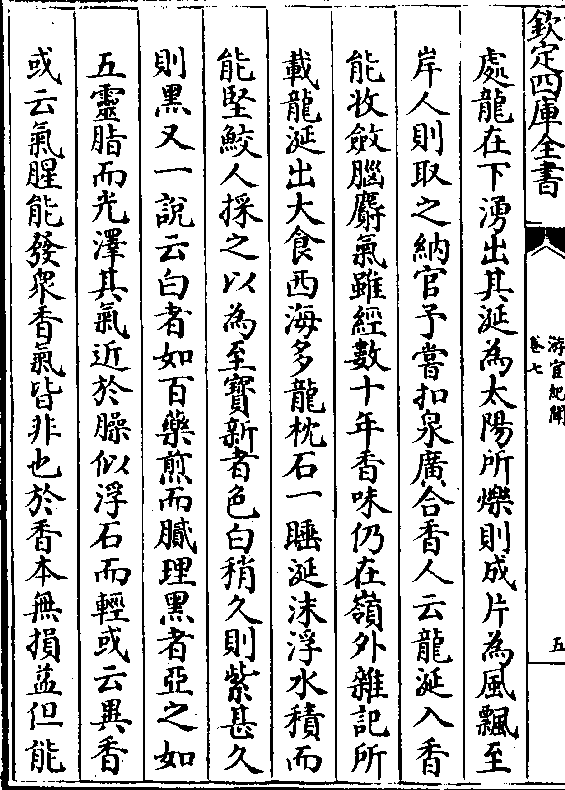 欽定四庫全書
游宦紀聞
卷七
五
處龍在下湧出其涎為太陽所爍則成片為風飄至
岸人則取之納官予嘗扣泉廣合香人云龍涎入香
能收斂腦麝氣雖經數十年香味仍在嶺外雜記所
載龍涎出大食西海多龍枕石一睡涎沫浮水積而
能堅鮫人採之以為至寳新者色白稍久則紫甚久
則黑又一說云白者如百藥煎而膩理黑者亞之如
五靈脂而光澤其氣近於臊似浮石而輕或云異香
或云氣腥能發衆香氣皆非也於香本無損益但能